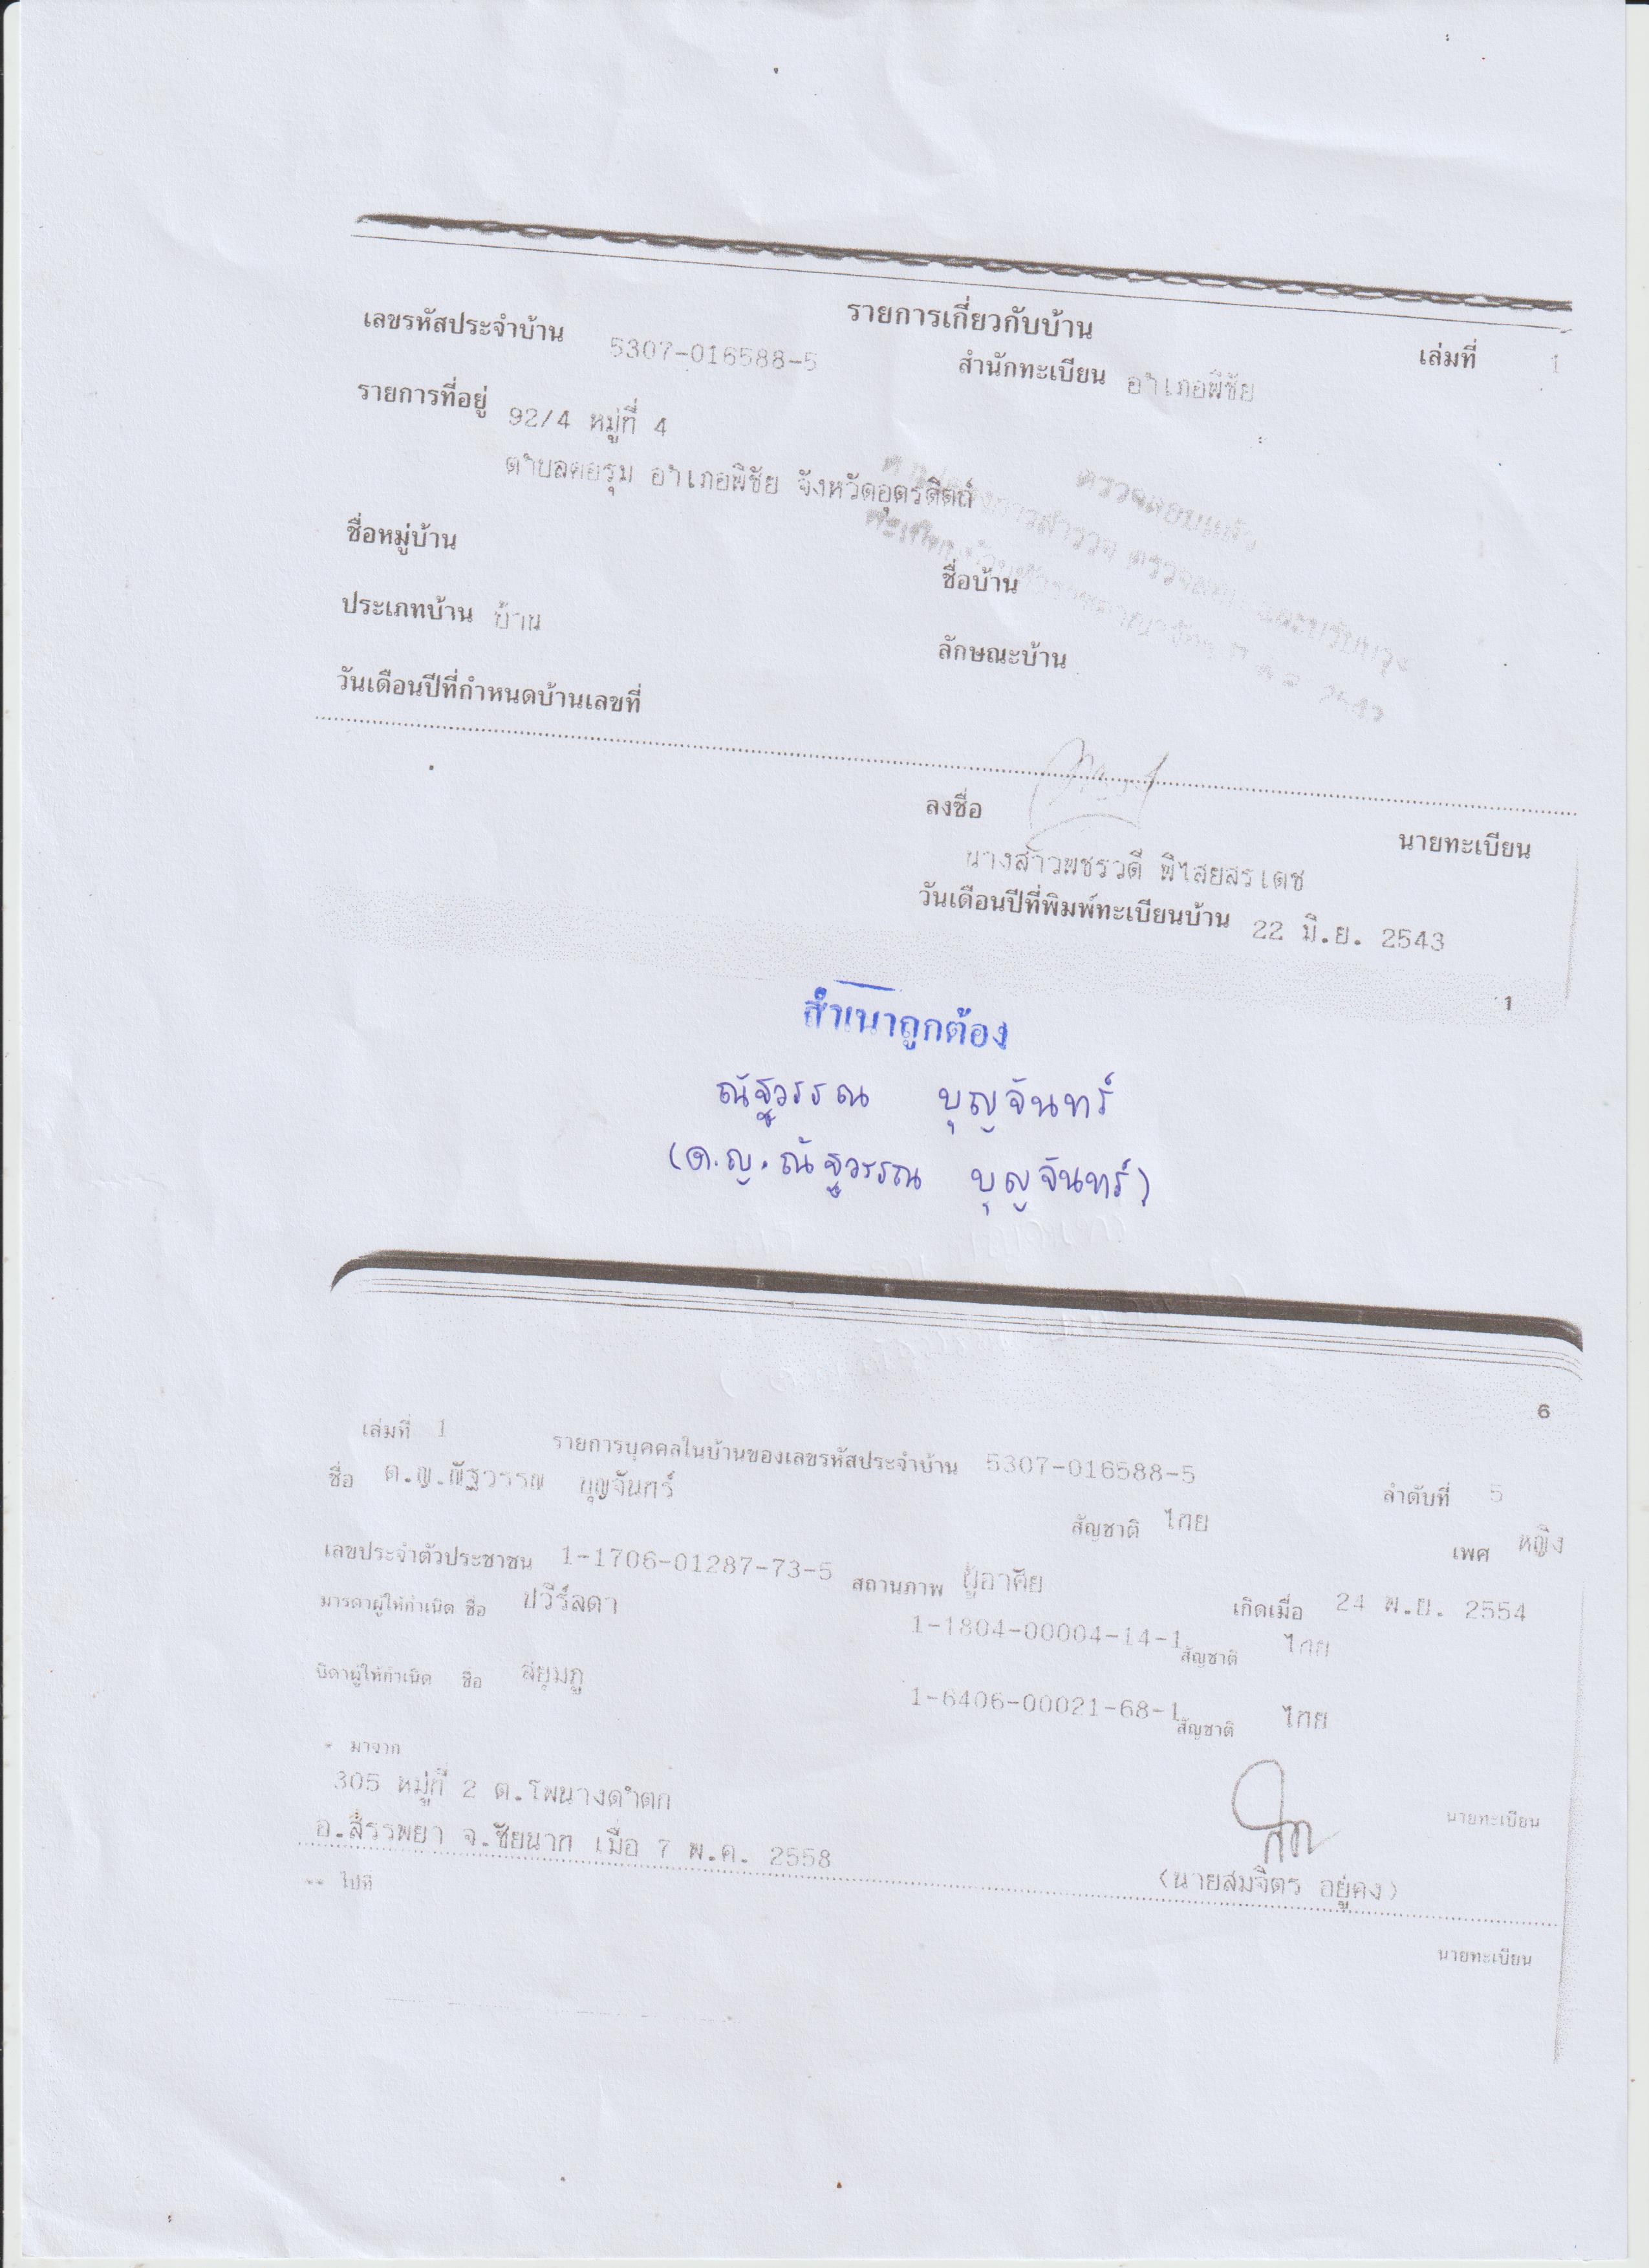 รายการเกี่ยวกับบ้าน
เล่มที่ 1
เลขรหัสประจำบ้าน 5307-016588-5 สำนักทะเบียน อำเภอพิชัย
รายการที่อยู่ 92/4 หมู่ที่ 4
ตำบลคอรุม อำเภอพิชัย จังหวัดอุตรดิตถ์
ตรวจสอบแล้ว
การสำรวจ ตรวจสอบ และปรับปรุง
ชื่อหมู่บ้าน ชื่อบ้าน
ประเภทบ้าน บ้าน ลักษณะบ้าน
วันเดือนปีที่กำหนดบ้านเลขที่
ลงชื่อ นายทะเบียน
นางสาวพชรวดี
วันเดือนปีที่พิมพ์ทะเบียนบ้าน 22 มิ.ย. 2543
1
สำเนาถูกต้อง
ณัฐวรรณ บุญจันทร์
(ด.ญ.ณัฐวรรณ บุญจันทร์)
6
เล่มที่ 1 รายการบุคคลในบ้านของเลขรหัสประจำบ้าน 5307-016588-5 ลำดับที่ 5
ชื่อ ด.ญ.ณัฐวรรณ บุญจันทร์ สัญชาติ ไทย เพศ หญิง
เลขประจำตัวประชาชน 1-1706-01287-73-5 สถานภาพ ผู้อาศัย เกิดเมื่อ 24 พ.ย. 2554
มารดาผู้ให้กำเนิด ชื่อ ปวีร์ลดา 1-1804-00004-14-1 สัญชาติ ไทย
บิดาผู้ให้กำเนิด ชื่อ สยุมภู 1-6406-00021-68-1 สัญชาติ ไทย
* มาจาก
305 หมู่ที่ 2 ต.โพนางดำตก นายทะเบียน
อ.สรรพยา จ.ชัยนาท เมื่อ 7 พ.ค. 2558 (นายสมจิตร อยู่คง)
** ไปที่
นายทะเบียน